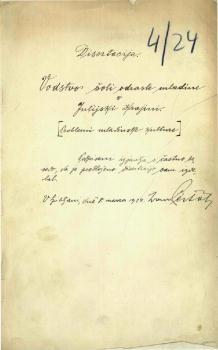 4/24
Disertacija.
Vodstvo šoli odrasle mladine
v
Julijski Krajini.
[Problemi mladinske kulture]
Podpisani izjavljam, s častno be-
sedo, da je predložena disertacija sam izde-
lal.
V Ljubljani, dne 8. marca 1924. Ivan